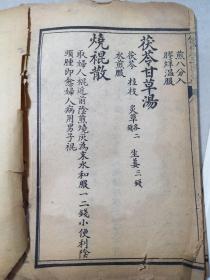 煎八分入
膠烊溫服
茯苓甘草湯
茯苓　桂枝各二錢　炙草一錢　生姜三錢
水煎服
燒裩散
取婦人裩近前陰處燒灰為末水和服一二錢小便利陰
頭腫即愈婦人病用男子裩